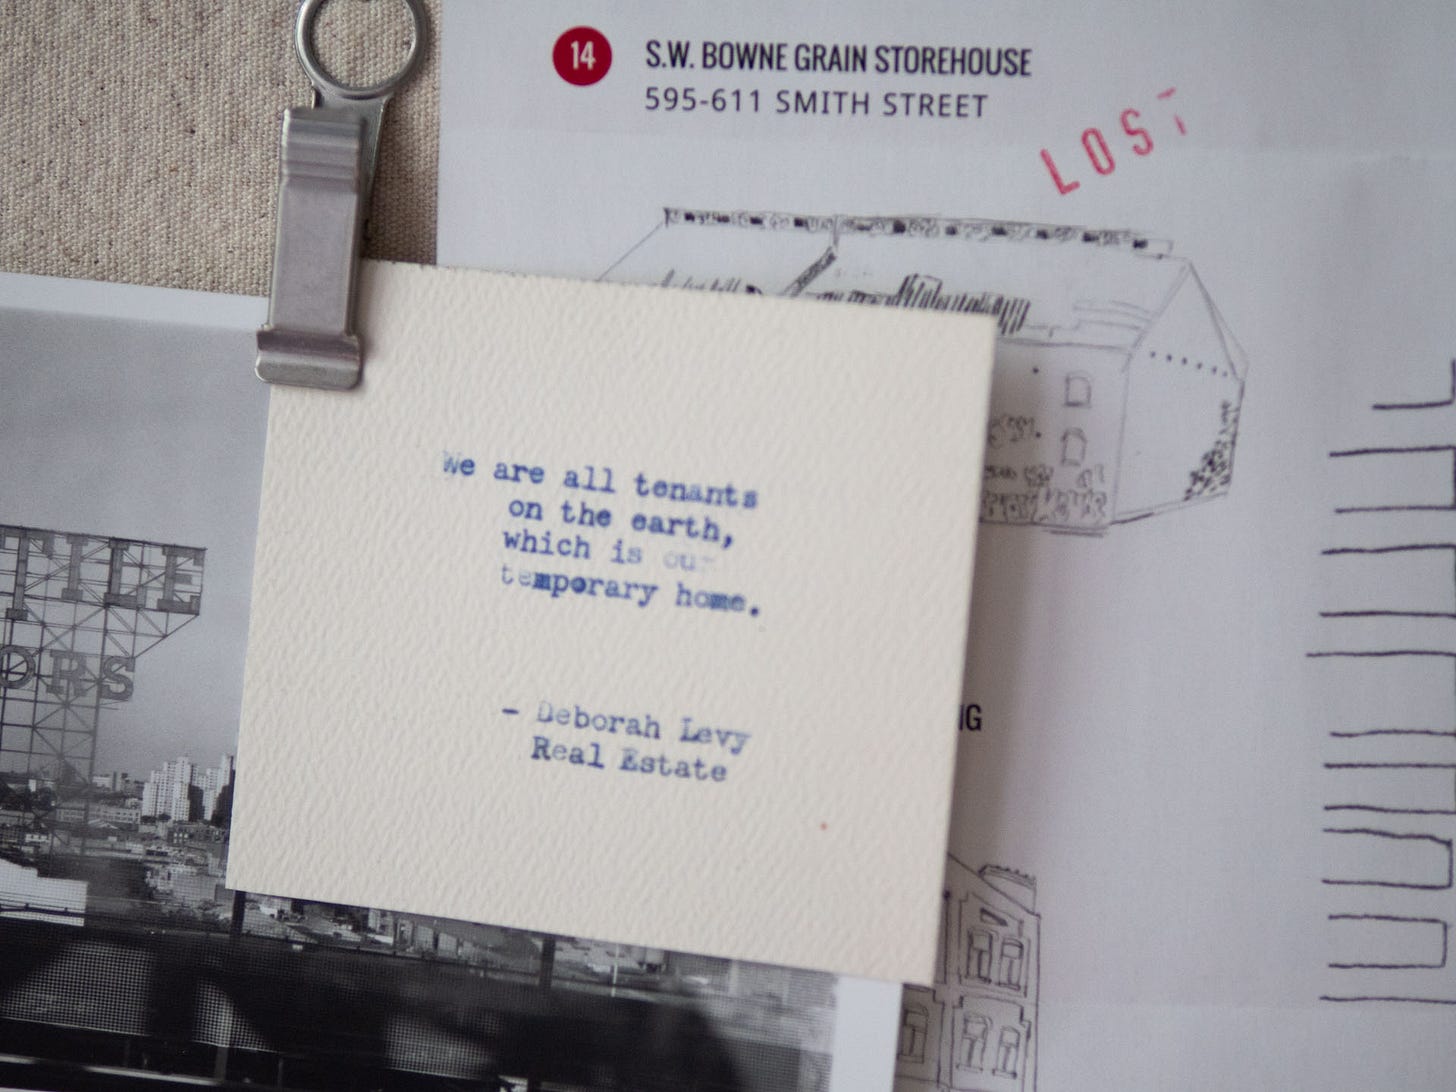 14
S.W. BOWNE GRAIN STOREHOUSE
595-611 SMITH STREET
LOST
We are all tenants
on the earth,
which is our
temporary home.
- Deborah Levy
Real Estate